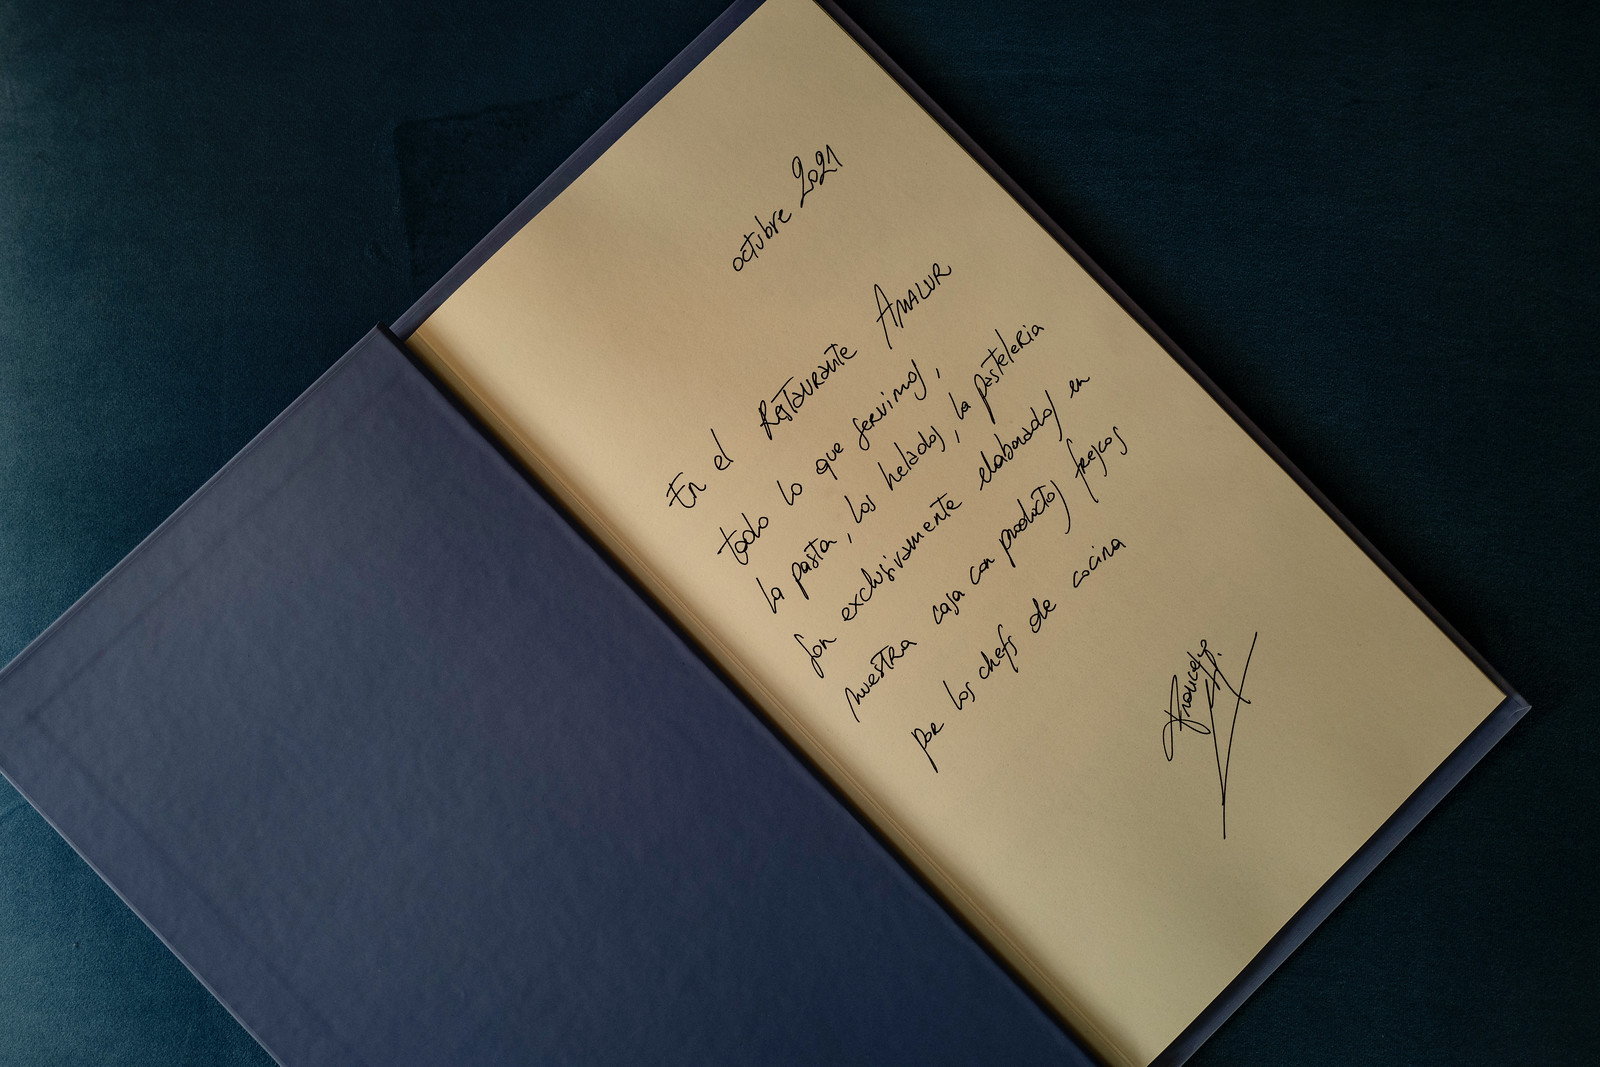 octubre 2021
En el Restaurante AMALUR
todo lo que servimos,
la pasta, los helados, la pasteleria
son exclusivamente elaborados en
nuestra casa con productos frescos
por los chefs de cocina